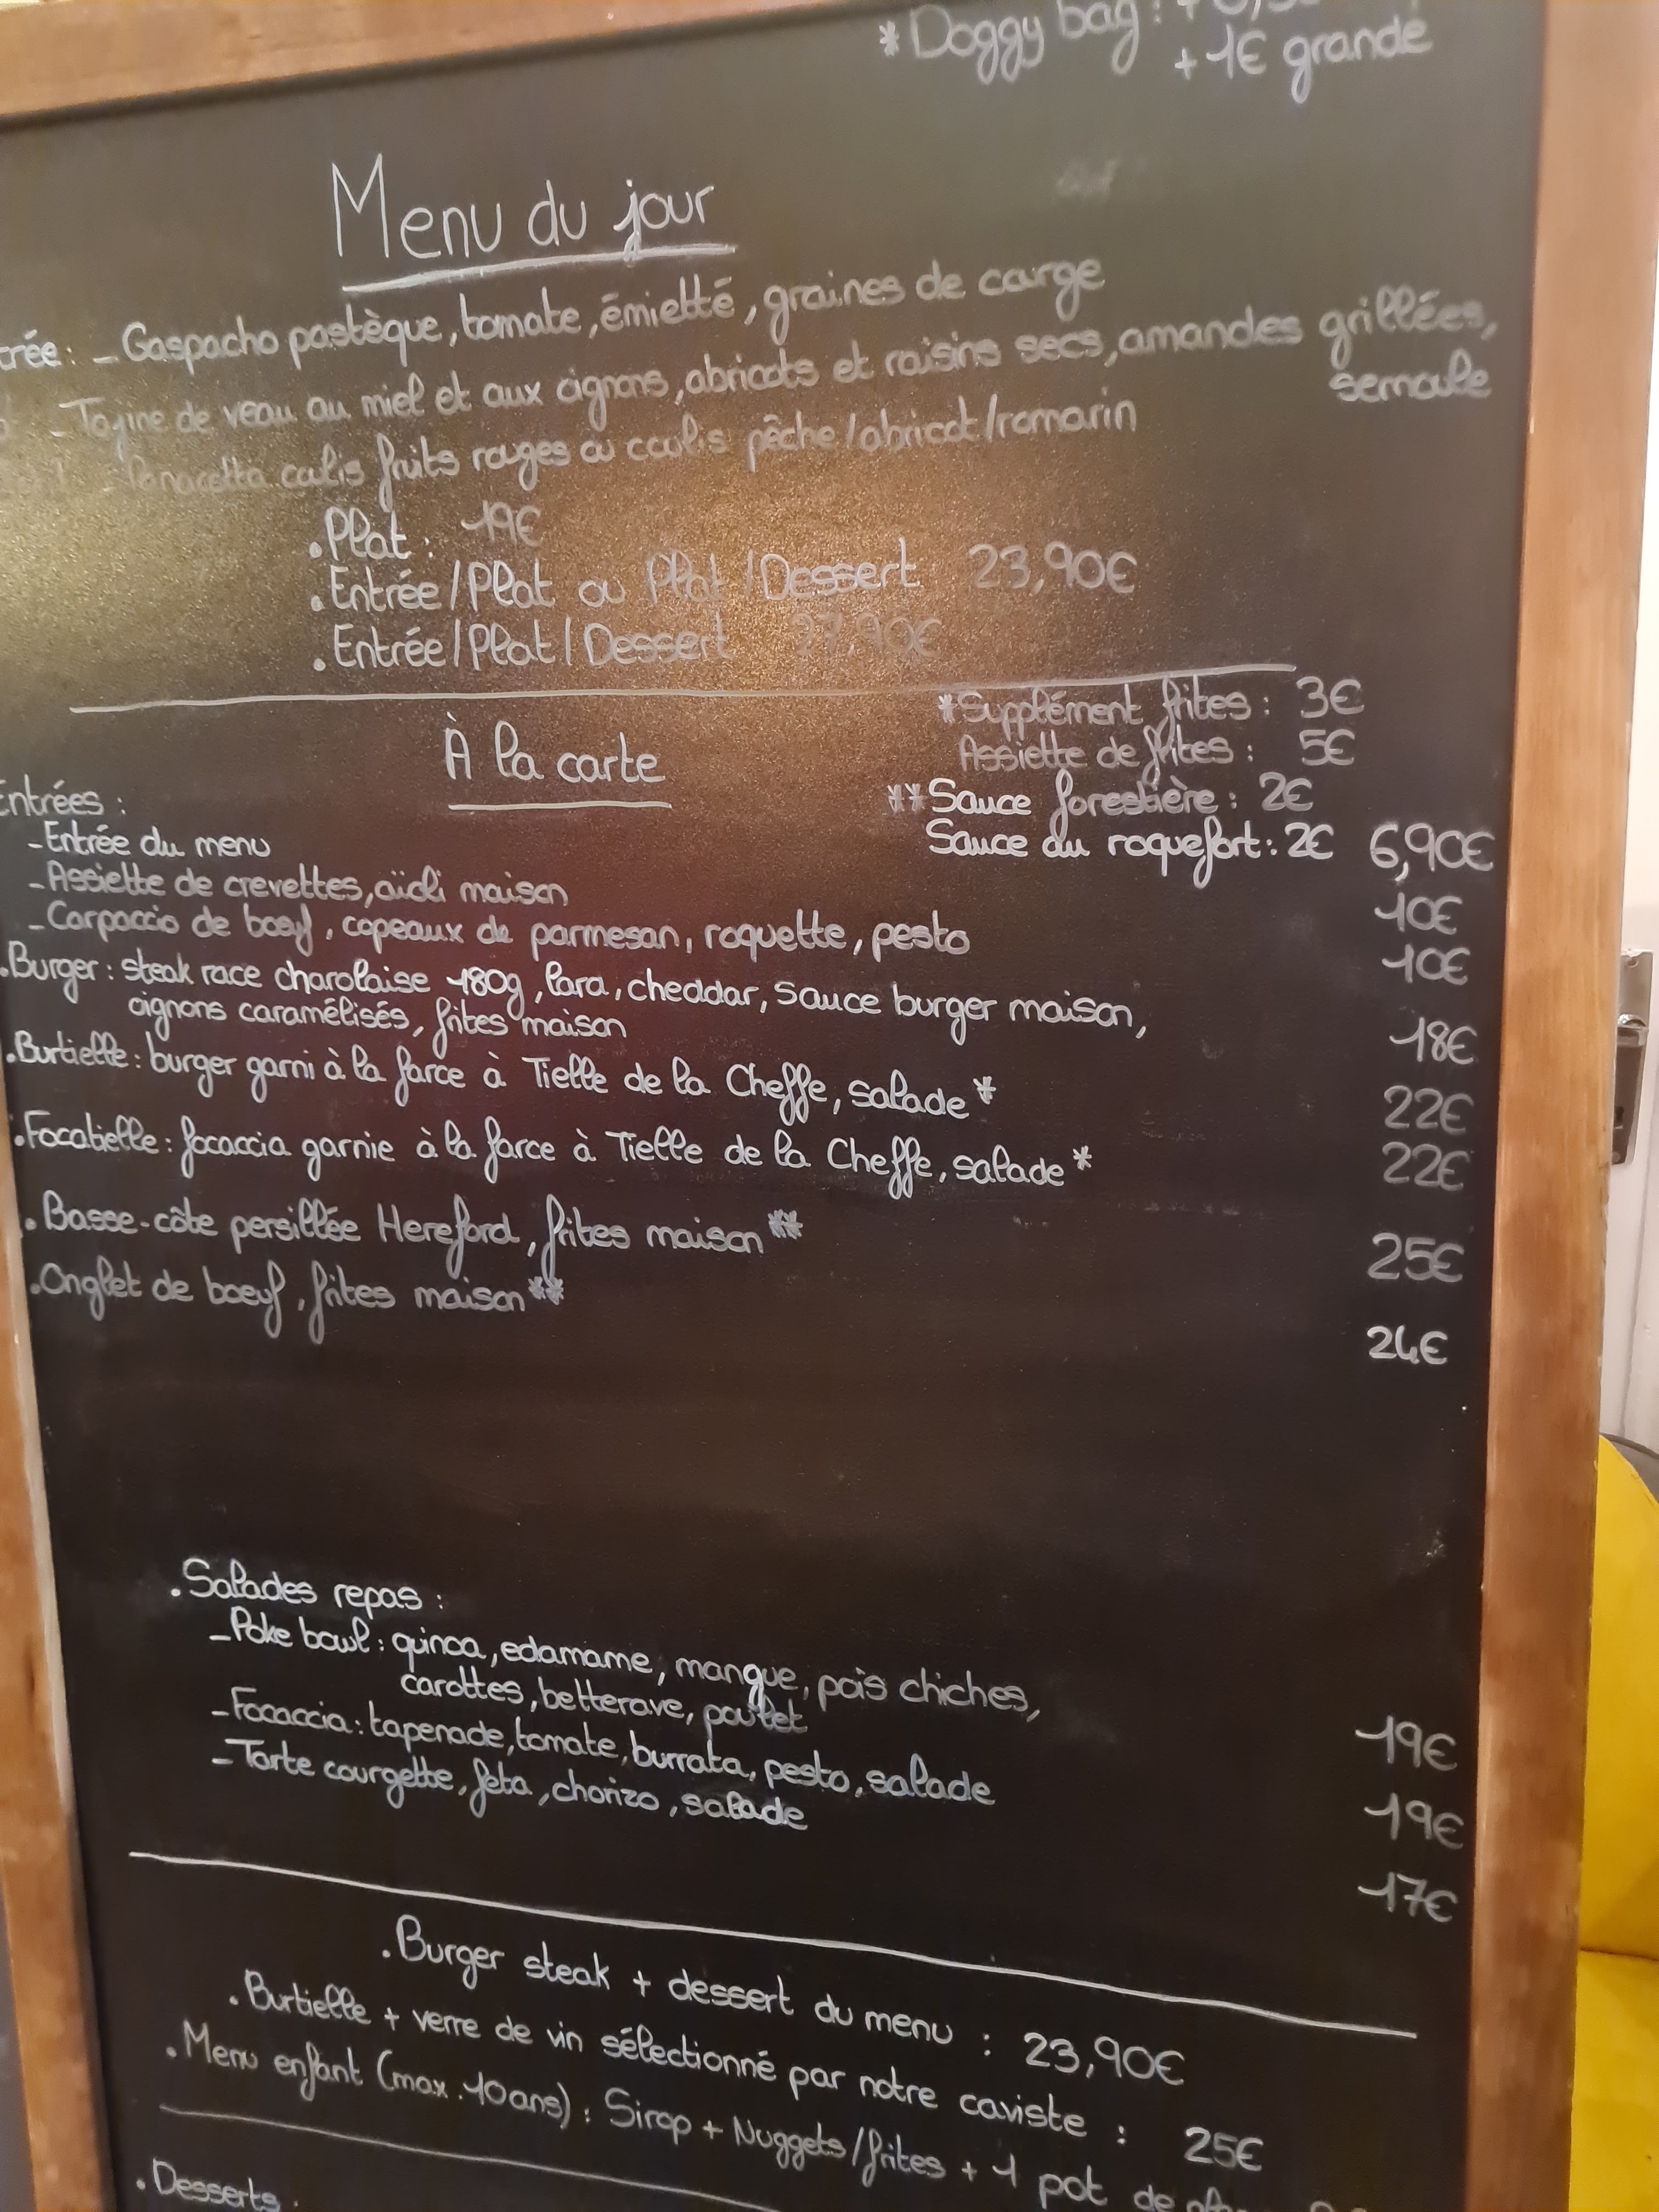 *Doggy bag :
+ 1€ grande
Menu du jour
trée : - Gaspacho pastèque, tomate, émietté, graines de courge
- Tagine de veau au miel et aux oignons, abricots et raisins secs, amandes grillées,
semoule
Panacotta coulis fruits rouges ou coulis pêche/abricot/romarin
. Plat : 19€
. Entrée/Plat ou Plat/Dessert 23,90€
. Entrée/Plat/Dessert 27,90€
*Supplément frites : 3€
Assiette de frites : 5€
À la carte
**Sauce forestière : 2€
Sauce au roquefort : 2€
Entrées :
- Entrée du menu 6,90€
- Assiette de crevettes, aïoli maison 10€
- Carpaccio de boeuf, copeaux de parmesan, roquette, pesto 10€
. Burger : steak race charolaise 180g, lard, cheddar, sauce burger maison,
oignons caramélisés, frites maison 18€
. Burtielle : burger garni à la farce à Tielle de la Cheffe, salade* 22€
. Focatielle : focaccia garnie à la farce à Tielle de la Cheffe, salade* 22€
. Basse-côte persillée Hereford, frites maison** 25€
. Onglet de boeuf, frites maison** 24€
. Salades repas :
- Poke bowl : quinoa, edamame, mangue, pois chiches,
carottes, betterave, poulet 19€
- Focaccia : tapenade, tomate, burrata, pesto, salade 19€
- Tarte courgette, feta, chorizo, salade 17€
. Burger steak + dessert du menu : 23,90€
. Burtielle + verre de vin sélectionné par notre caviste : 25€
. Menu enfant (max. 10ans) : Sirop + Nuggets/frites + 1 pot de
. Desserts :